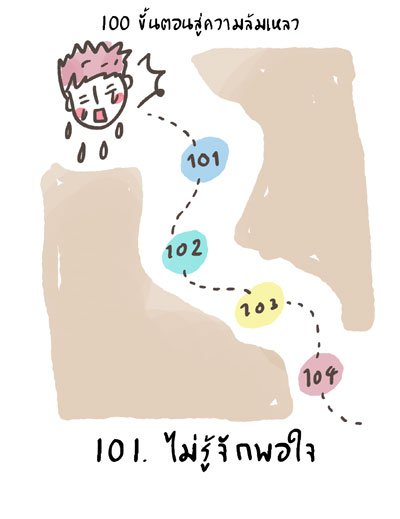 100 ขั้นตอนสู่ความล้มเหลว
101
102
103
104
101. ไม่รู้จักพอใจ